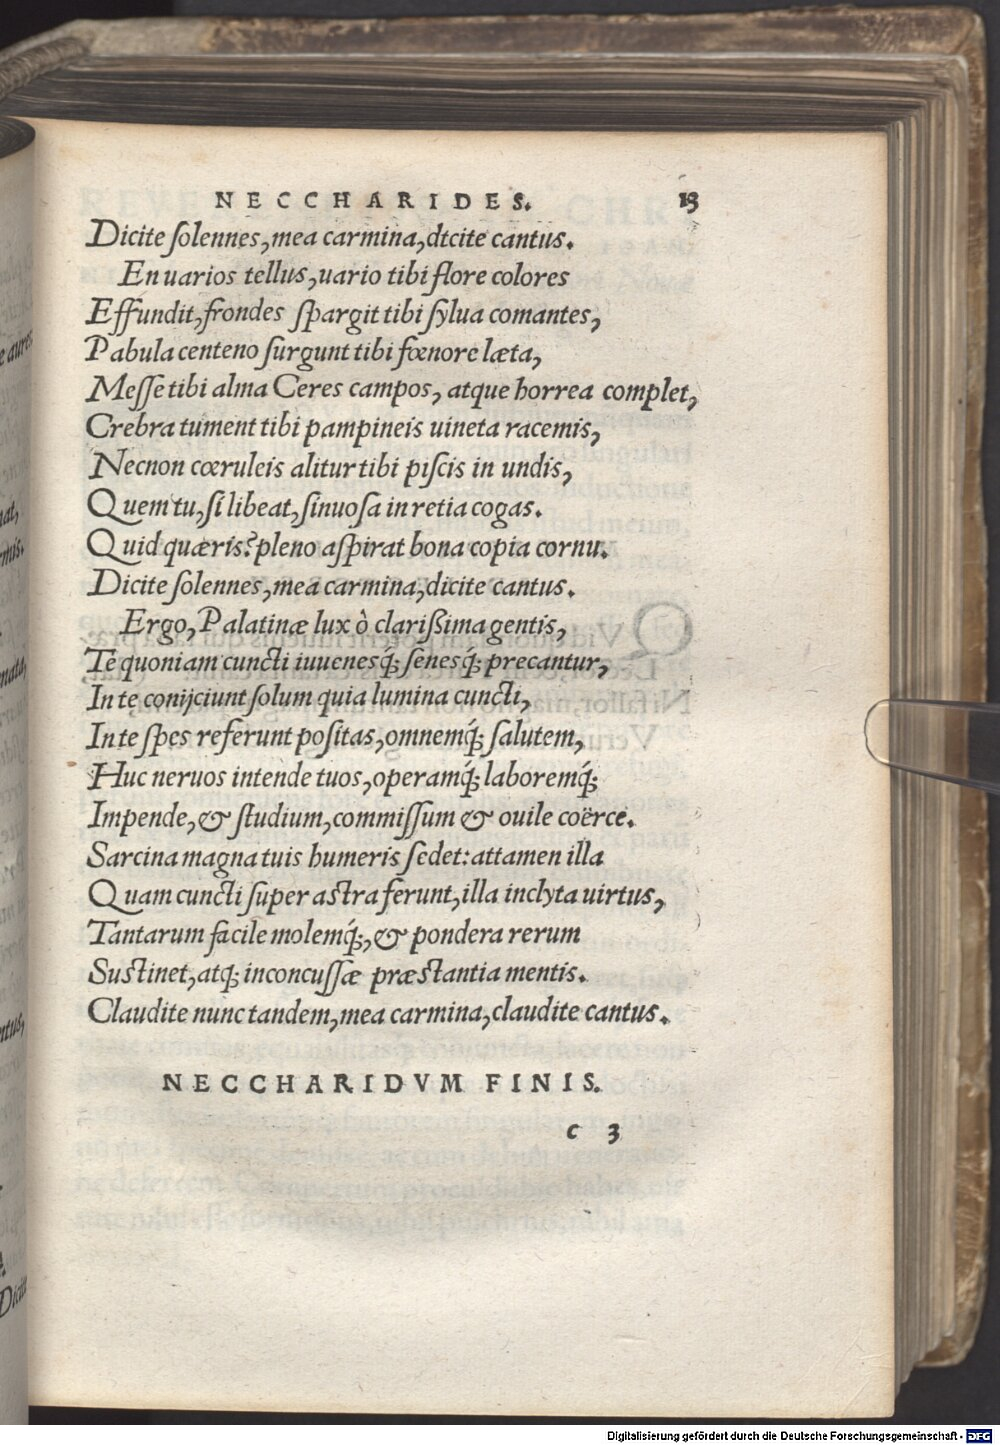 NECCHARIDES. 13
Dicite ſolennes, mea carmina, dtcite cantus.
En uarios tellus, uario tibi flore colores
Effundit, frondes ſpargit tibi ſylua comantes,
Pabula centeno ſurgunt tibi fœnore læta,
Meſſe tibi alma Ceres campos, atque horrea complet,
Crebra tument tibi pampineis uineta racemis,
Necnon cœruleis alitur tibi piſcis in undis,
Quem tu, ſi libeat, ſinuoſa in retia cogas.
Quid quæris? pleno aſpirat bona copia cornu.
Dicite ſolennes, mea carmina, dicite cantus.
Ergo, Palatinæ lux ò clariſsima gentis,
Te quoniam cuncti iuuenesq́; ſenesq́; precantur,
In te conijciunt ſolum quia lumina cuncti,
In te ſpes referunt poſitas, omnemq́; ſalutem,
Huc neruos intende tuos, operamq́; laboremq́;
Impende, & ſtudium, commiſſum & ouile coërce.
Sarcina magna tuis humeris ſedet: attamen illa
Quam cuncti ſuper aſtra ferunt, illa inclyta uirtus,
Tantarum facile molemq́;, & pondera rerum
Suſtinet, atq; inconcuſſæ præſtantia mentis.
Claudite nunc tandem, mea carmina, claudite cantus.
NECCHARIDVM FINIS.
c 3
Digitalisierung gefördert durch die Deutsche Forschungsgemeinschaft - DFG